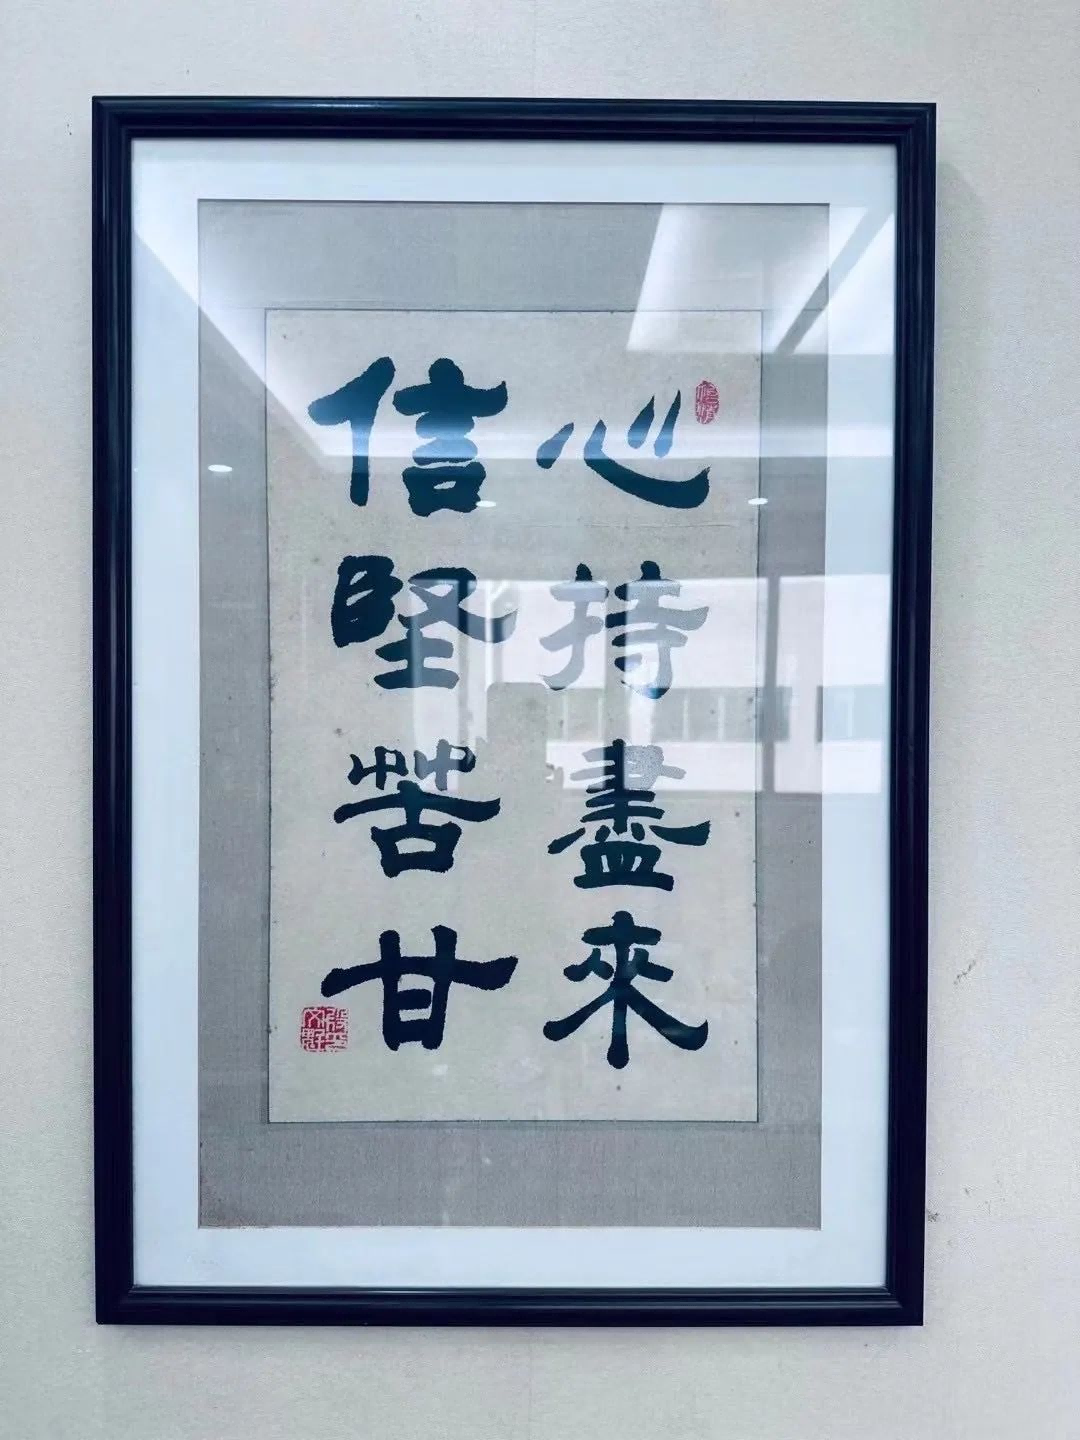 心持盡來
信堅苦甘